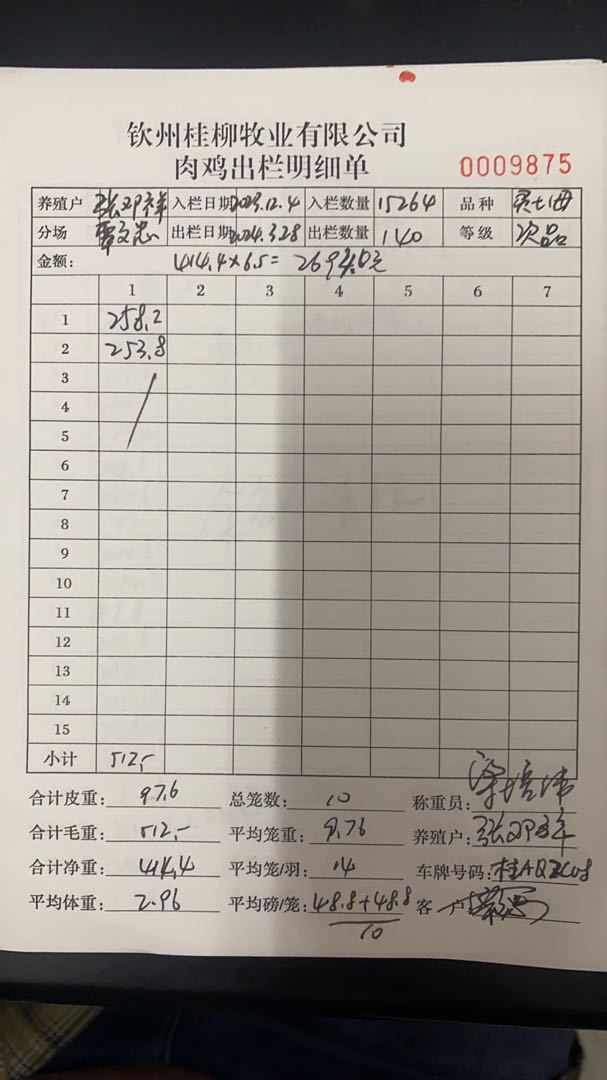 钦州桂柳牧业有限公司
肉鸡出栏明细单
0009875
养殖户 张邓祥 入栏日期 2023.12.4 入栏数量 15264 品种
分场 出栏日期 2024.3.28 出栏数量 140 等级 次品
金额: 414.4×6.5=
1 2 3 4 5 6 7
1 258.2
2 253.8
3
4
5
6
7
8
9
10
11
12
13
14
15
小计 512,-
合计皮重: 97.6 总笼数: 10 称重员: 梁培伟
合计毛重: 512,- 平均笼重: 9.76 养殖户: 张邓祥
合计净重: 414.4 平均笼/羽: 14 车牌号码:
平均体重: 2.96 平均磅/笼: 48.8+48.8 客户
10